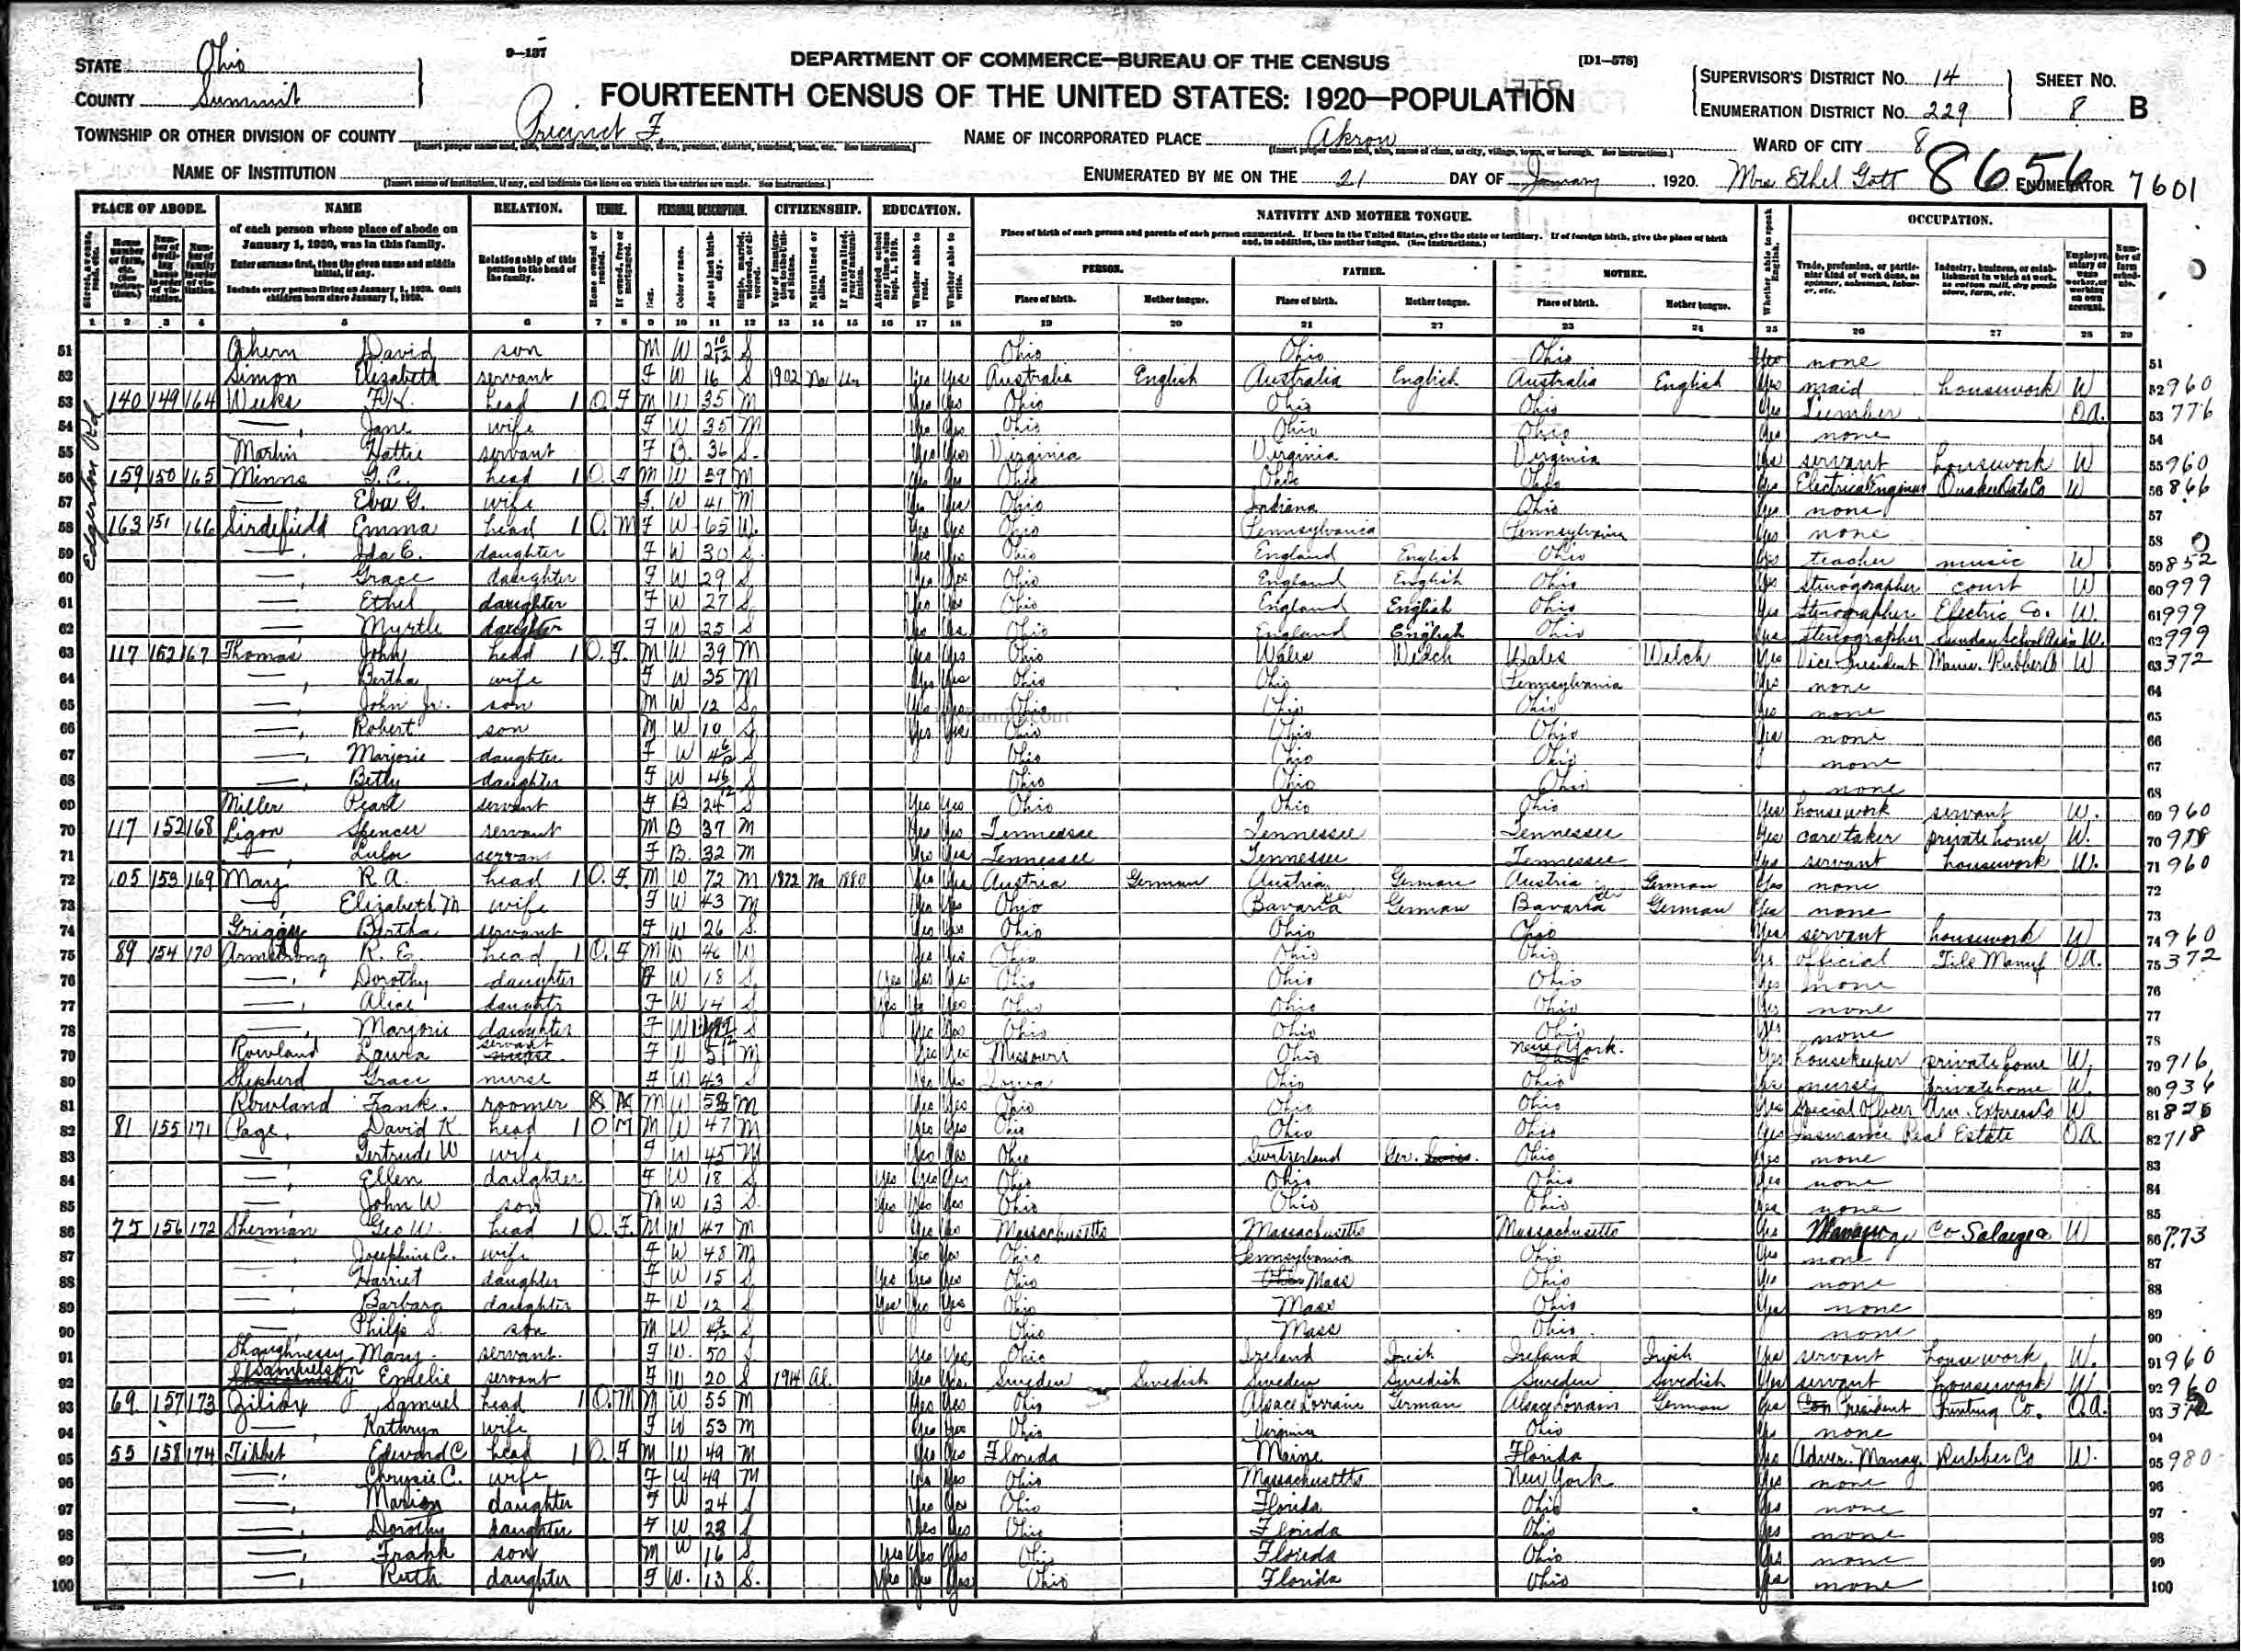 9—137
DEPARTMENT OF COMMERCE—BUREAU OF THE CENSUS
[D1—578]
FOURTEENTH CENSUS OF THE UNITED STATES: 1920—POPULATION
STATE Ohio
COUNTY Summit
SUPERVISOR'S DISTRICT No. 14
ENUMERATION DISTRICT No. 229
SHEET No. 8 B
TOWNSHIP OR OTHER DIVISION OF COUNTY Precinct F
NAME OF INCORPORATED PLACE Akron
WARD OF CITY 8
NAME OF INSTITUTION
ENUMERATED BY ME ON THE 21 DAY OF January, 1920. Mrs Ethel Gott ENUMERATOR
8656
7601
PLACE OF ABODE. NAME RELATION. TENURE. PERSONAL DESCRIPTION. CITIZENSHIP. EDUCATION. NATIVITY AND MOTHER TONGUE. OCCUPATION.
of each person whose place of abode on January 1, 1920, was in this family.
Enter surname first, then the given name and middle initial, if any.
Include every person living on January 1, 1920. Omit children born since January 1, 1920.
Relationship of this person to the head of the family.
PERSON. FATHER. MOTHER.
Place of birth. Mother tongue. Place of birth. Mother tongue. Place of birth. Mother tongue.
Edgerton Rd
51 Ahern David son M W 2 10/12 S Ohio Ohio Ohio none 51
52 Simon Elizabeth servant F W 16 S 1902 Na Yes Yes Australia English Australia English Australia English Yes maid housework W 52 960
53 140 149 164 Weeks head 1 O F M W 35 M Yes Yes Ohio Ohio Ohio Yes Lumber O.A. 53 776
54 Jane wife F W 35 M Yes Yes Ohio Ohio Ohio Yes none 54
55 Martin Hattie servant F B 36 S Yes Yes Virginia Virginia Virginia Yes servant housework W 55 960
56 159 150 165 Minns G.C. head 1 O F M W 39 M Yes Yes Ohio Ohio Ohio Yes Electrical Engineer Quaker Oats Co W 56 866
57 Eva G. wife F W 41 M Yes Yes Ohio Indiana Ohio Yes none 57
58 163 151 166 Sirdefield Emma head 1 O M F W 65 W Yes Yes Ohio Pennsylvania Pennsylvania Yes none 58
59 Ida E. daughter F W 30 S Yes Yes Ohio England English Ohio Yes teacher music W 59 852
60 Grace daughter F W 29 S Yes Yes Ohio England English Ohio Yes Stenographer court W 60 999
61 Ethel daughter F W 27 S Yes Yes Ohio England English Ohio Yes Stenographer Electric Co. W. 61 999
62 Myrtle daughter F W 25 S Yes Yes Ohio England English Ohio Yes stenographer Sunday School Ass'n W. 62 999
63 117 152 167 Thomas John head 1 O. F. M W 39 M Yes Yes Ohio Wales Welch Wales Welch Yes Vice President Rubber W 63 372
64 Bertha wife F W 35 M Yes Yes Ohio Ohio Pennsylvania Yes none 64
65 John Jr. son M W 12 S Yes Yes Ohio Ohio Ohio Yes none 65
66 Robert son M W 10 S Yes Yes Ohio Ohio Ohio Yes none 66
67 Marjorie daughter F W 4 6/12 S Ohio Ohio Ohio none 67
68 Betty daughter F W S Ohio Ohio Ohio none 68
69 Miller Pearl servant F B 24 S Yes Yes Ohio Ohio Ohio Yes housework servant W. 69 960
70 117 152 168 Ligon Spencer servant M B 37 M Yes Yes Tennessee Tennessee Tennessee Yes caretaker private home W. 70
71 Lulu servant F B. 32 M Yes Yes Tennessee Tennessee Tennessee Yes servant housework W. 71 960
72 105 153 169 May R A. head 1 O. F. M W 72 M 1872 Na 1880 Yes Yes Austria German Austria German Austria German Yes none 72
73 Elizabeth M wife F W 43 M Yes Yes Ohio Bavaria German Bavaria German Yes none 73
74 Griggy Bertha servant F W 26 S. Yes Yes Ohio Ohio Ohio Yes servant housework W 74 960
75 89 154 170 Armstrong R. E. head 1 O. F M W 46 W Yes Yes Ohio Ohio Ohio Yes official Tile Manuf O.A. 75 372
76 Dorothy daughter F W 18 S Yes Yes Yes Ohio Ohio Ohio Yes none 76
77 Alice daughter F W 14 S Yes Yes Yes Ohio Ohio Ohio Yes none 77
78 Marjorie daughter F W S Yes Yes Ohio Ohio Ohio Yes none 78
79 Rowland Laura servant F W 51 M Yes Yes Missouri Ohio New York. Yes housekeeper private home W. 79 916
80 Shepherd Grace nurse F W 43 S Yes Yes Iowa Ohio Ohio Yes nurse private home W. 80 934
81 Rowland Frank. roomer M W M Yes Yes Ohio Ohio Ohio Yes Special Officer Am. Express Co W 81
82 81 155 171 Page, David K head 1 O M M W 47 M Yes Yes Ohio Ohio Ohio Yes Insurance Real Estate O.A. 82 718
83 Gertrude W wife F W 45 M Yes Yes Ohio Switzerland Ger. Swiss. Ohio Yes none 83
84 Ellen daughter F W 18 S Yes Yes Yes Ohio Ohio Ohio Yes none 84
85 John W son M W 13 S. Yes Yes Yes Ohio Ohio Ohio Yes none 85
86 75 156 172 Sherman Geo W. head 1 O. F. M W 47 M Yes Yes Massachusetts Massachusetts Massachusetts Yes W 86
87 Josephine C. wife F W 48 M Yes Yes Ohio Pennsylvania Ohio Yes none 87
88 Harriet daughter F W 15 S Yes Yes Yes Ohio Ohio Mass Ohio Yes none 88
89 Barbara daughter F W 12 S Yes Yes Yes Ohio Mass Ohio Yes none 89
90 Philip S. son M W S Ohio Mass Ohio none 90
91 Shaughnessy Mary servant. F W. 50 S Yes Yes Ohio Ireland Irish Ireland Irish Yes servant housework W. 91 960
92 Samuelson Emelie servant F W 20 S 1914 Al. Yes Yes Sweden Swedish Sweden Swedish Sweden Swedish Yes servant housework W 92 960
93 69 157 173 Ziliox Samuel head 1 O. M M W 55 M Yes Yes Ohio Alsace Lorraine German Alsace Lorrain German Yes President Printing Co. O.A. 93
94 Kathryn wife F W 53 M Yes Yes Ohio Virginia Ohio Yes none 94
95 55 158 174 Tibbet Edward C head 1 O. F M W 49 M Yes Yes Florida Maine Florida Yes Adver. Manag. Rubber Co W. 95 980
96 Chrysie C. wife F W 49 M Yes Yes Ohio Massachusetts New York Yes none 96
97 Marion daughter F W 24 S Yes Yes Ohio Florida Ohio Yes none 97
98 Dorothy daughter F W S Yes Yes Ohio Florida Ohio Yes none 98
99 Frank son M W 16 S Yes Yes Yes Ohio Florida Ohio Yes none 99
100 Ruth daughter F W. 13 S. Yes Yes Yes Ohio Florida Ohio Yes none 100